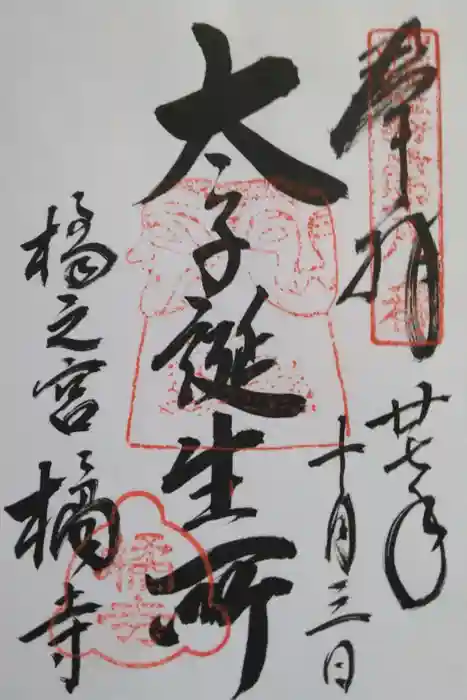 奉拝
廿七年
十月三日
太子誕生所
橘之宮 橘寺
橘寺